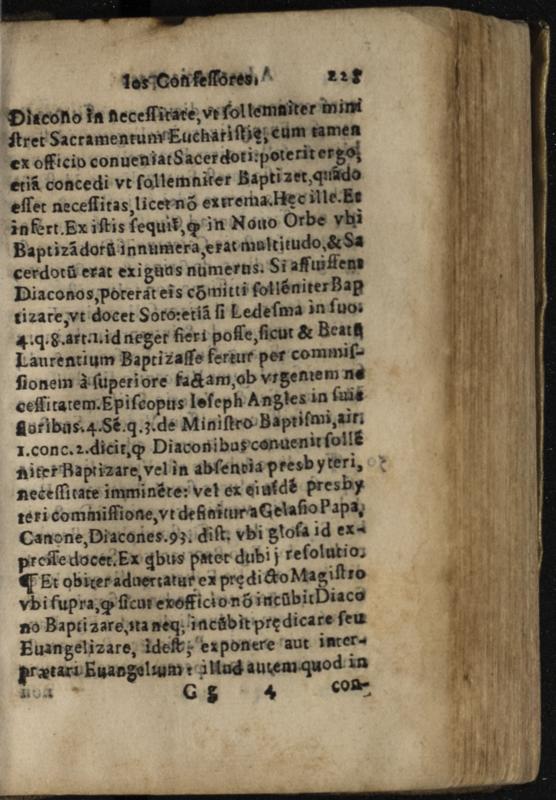 los Confessores. 228
Diacono in necessitate, vt sollemniter mini
stret Sacramentum Eucharistię, cum tamen
ex officio conueniat Sacerdoti: poterit ergo,
etiā concedi vt sollemniter Baptizet, quādo
esset necessitas, licet nō extrema. Hęc ille. Et
infert. Ex istis sequit᷑, ꝙ in Nouo Orbe vbi
Baptizādorū innumera, erat multitudo, & Sa
cerdotū erat exiguus numerus. Si affuissent
Diaconos, poterāt eis cōmitti sollēniter Bap
tizare, vt docet Soto: etiā si Ledesma in suo.
4. q. 8. art. 1. id neget fieri posse, sicut & Beatū
Laurentium Baptizasse fertur per commis-
sionem à superiore factam, ob vrgentem ne
cessitatem. Episcopus Ioseph Angles in suis
floribus. 4. Sē. q. 3. de Ministro Baptismi, ait.
1. conc. 2. dicit, ꝙ Diaconibus conuenit sollē
niter Baptizare, vel in absentia presbyteri,
necessitate imminēte: vel ex eiusdē presby
teri commissione, vt definitur a Gelasio Papa,
Canone, Diacones. 93. dist. vbi glosa id ex-
presse docet. Ex q̄bus patet dubij resolutio.
¶ Et obiter aduertatur ex prędicto Magistro
vbi supra, ꝙ sicut ex officio nō incūbit Diaco
no Baptizare, ita neq; incūbit prędicare seu
Euangelizare, idest, exponere aut inter-
prætari Euangelium: illud autem quod in
G g 4 con-